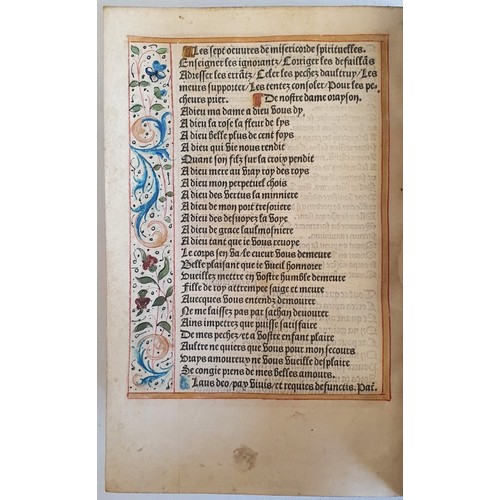 Les sept oeuvres de misericorde spirituelles.
Enseigner les ignorantz / Corriger les defaillãs
Adresser les errãtz / Celer les pechez daultruy / Les
meurs supporter / Les tentez consoler / Pour les pe-
cheurs prier. De nostre dame orayson.
Adieu ma dame a dieu vous dy
Adieu la rose la fleur de lys
Adieu belle plus de cent foys
Adieu qui vie nous rendit
Quant son filz sur la croix pendit
Adieu mere au vray roy des roys
Adieu mon perpetuel choix
Adieu des vertus la minniere
Adieu de mon port tresoriere
Adieu des desuoyez la voye
Adieu de grace laulmosniere
Adieu tant que ie vous reuoye
Le corps sen va le cueur vous demeure
Belle plaisant que ie vueil honnorer
Vueillez mettre en vostre humble demeure
Fille de roy attrempee saige et meure
Auecques vous entendz demourer
Ne me laissez pas par sathan deuourer
Ains impetrez que puisse satisfaire
De mes pechez / et a vostre enfant plaire
Aultre ne quiers que vous pour mon secours
Vrays amoureux ne vous vueille desplaire
Se congie prens de mes belles amours.
Laus deo / pax viuis / et requies defunctis. Pat̃.